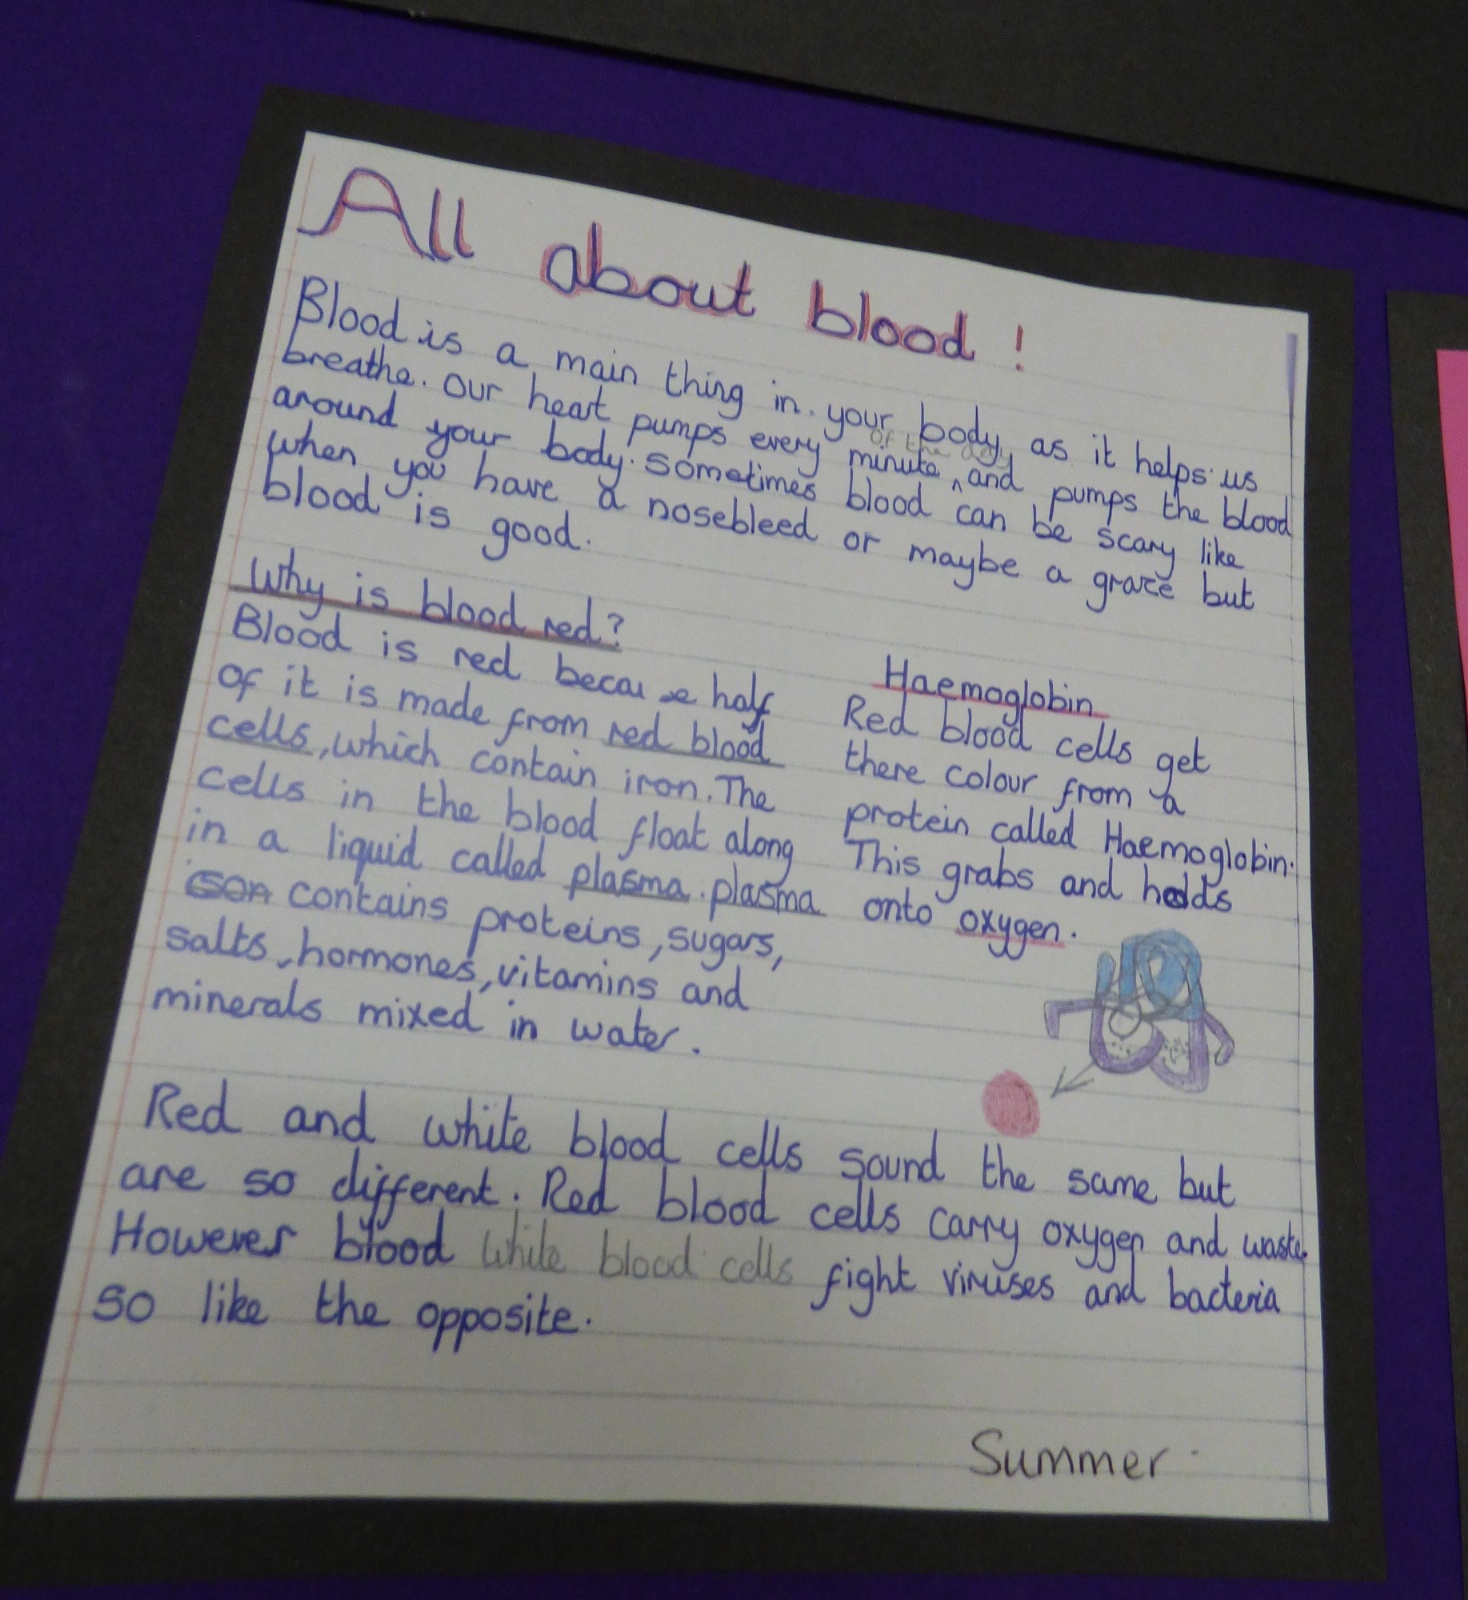 All about blood !
Blood is a main thing in your body as it helps us
breathe. Our heart pumps every minute of the day and pumps the blood
around your body. Sometimes blood can be scary like
when you have a nosebleed or maybe a graze but
blood is good.
Why is blood red?
Blood is red because half
of it is made from red blood
cells, which contain iron. The
cells in the blood float along
in a liquid called plasma. plasma
contains proteins, sugars,
salts, hormones, vitamins and
minerals mixed in water.
Haemoglobin
Red blood cells get
there colour from a
protein called Haemoglobin.
This grabs and holds
onto oxygen.
Red and white blood cells sound the same but
are so different. Red blood cells carry oxygen and waste.
However blood white blood cells fight viruses and bacteria
so like the opposite.
Summer